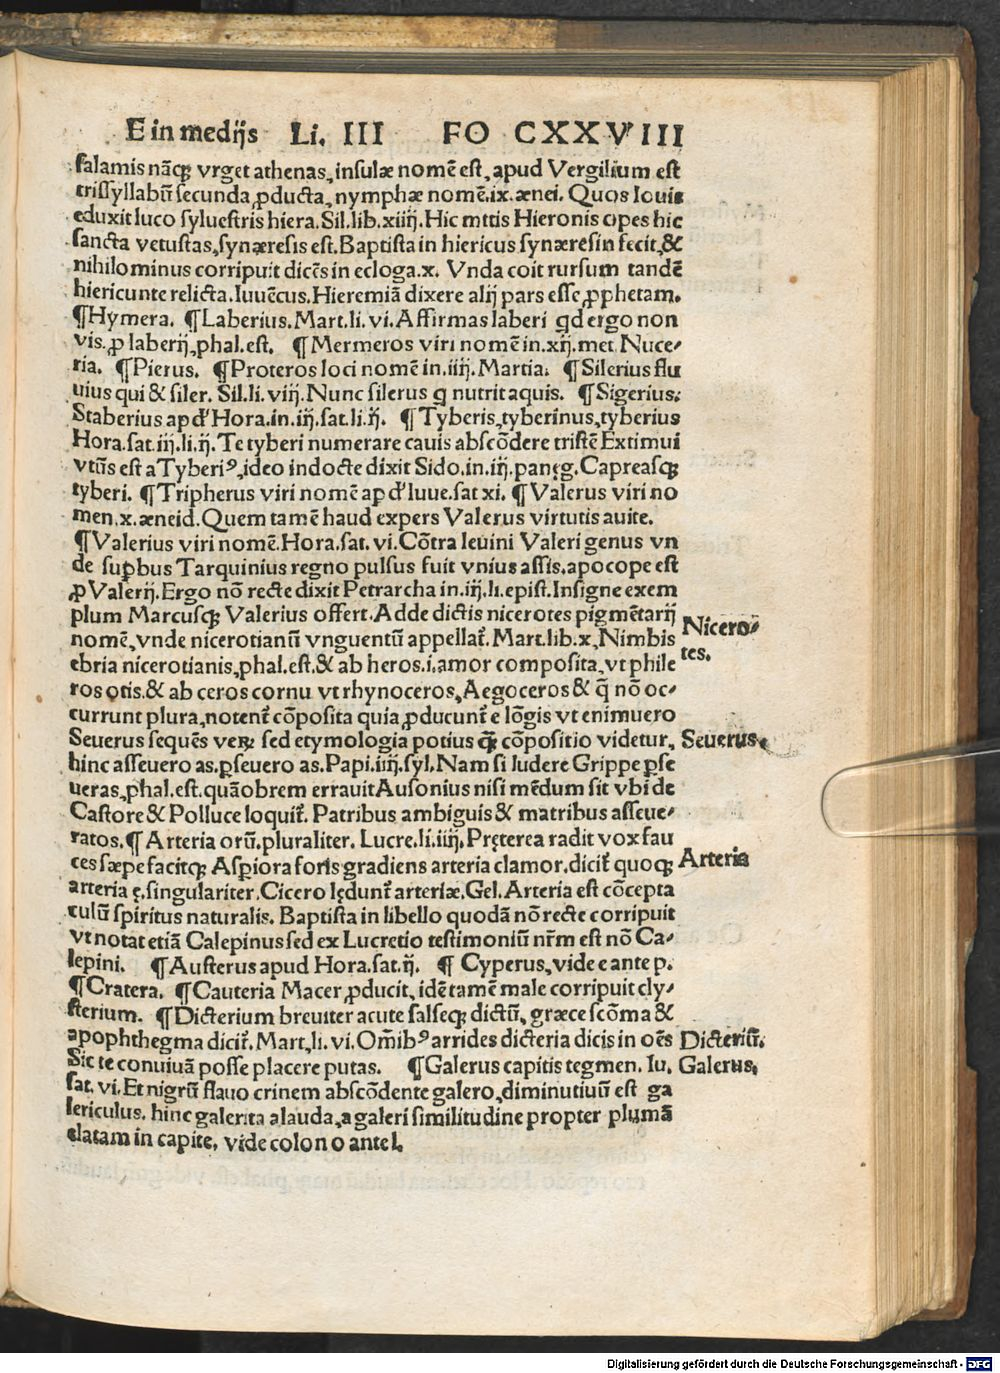 E in medijs Li. III FO CXXVIII
salamis nãqꝫ vrget athenas, insulæ nomẽ est, apud Vergilium est
trissyllabũ secunda ꝓducta, nymphæ nomẽ.ix.ænei. Quos Iouis
eduxit luco syluestris hiera. Sil.lib.xiiij. Hic mitis Hieronis opes hic
sancta vetustas, synæresis est. Baptista in hiericus synæresin fecit, &
nihilominus corripuit dicẽs in ecloga.x. Vnda coit rursum tandẽ
hiericunte relicta. Iuuẽcus. Hieremiã dixere alij pars esse ꝓphetam.
¶Hymera. ¶Laberius. Mart.li.vi. Affirmas laberi qd ergo non
vis. ꝓ laberij, phal.est. ¶Mermeros viri nomẽ in.xij.met. Nuce-
ria. ¶Pierus. ¶Proteros loci nomẽ in.iiij. Martia. ¶Silerius flu
uius qui & siler. Sil.li.viij. Nunc silerus q nutrit aquis. ¶Sigerius.
Staberius ap d' Hora.in.iij.sat.li.ij. ¶Tyberis, tyberinus, tyberius
Hora.sat.iij.li.ij. Te tyberi numerare cauis abscõdere tristẽ Extimui
vtũs est a Tyberiꝰ, ideo indocte dixit Sido.in.iij.panęg. Capreasqꝫ
tyberi. ¶Tripherus viri nomẽ ap d' Iuue.sat xi. ¶Valerus viri no
men.x.æneid. Quem tamẽ haud expers Valerus virtutis auite.
¶Valerius viri nomẽ. Hora.sat.vi. Cõtra leuini Valeri genus vn
de suꝑbus Tarquinius regno pulsus fuit vnius assis, apocope est
ꝓ Valerij. Ergo nõ recte dixit Petrarcha in.iij.li.epist. Insigne exem
plum Marcusqꝫ Valerius offert. Adde dictis nicerotes pigmẽtarij
nomẽ, vnde nicerotianũ vnguentũ appellat᷑. Mart.lib.x, Nimbis
ebria nicerotianis, phal.est. & ab heros.i.amor composita, vt phile
ros otis. & ab ceros cornu vt rhynoceros, Aegoceros & q̃ nõ oc-
currunt plura, notent᷑ cõposita quia ꝓducunt᷑ e lõgis vt enimuero
Seuerus sequẽs veꝝ sed etymologia potius q̃ꝫ cõpositio videtur,
hinc asseuero as. ꝑseuero as. Papi.iiij.syl. Nam si ludere Grippe ꝑse
ueras, phal.est. quãobrem errauit Ausonius nisi mẽdum sit vbi de
Castore & Polluce loquit᷑. Patribus ambiguis & matribus asseue-
ratos. ¶Arteria orũ.pluraliter. Lucre.li.iiij. Pręterea radit vox fau
ces sæpe facitqꝫ Asꝑiora foris gradiens arteria clamor. dicit᷑ quoqꝫ
arteria ę, singulariter. Cicero lędunt᷑ arteriæ. Gel. Arteria est cõcepta
culũ spiritus naturalis. Baptista in libello quodã nõ recte corripuit
vt notat etiã Calepinus sed ex Lucretio testimoniũ nr̃m est nõ Ca-
lepini. ¶Austerus apud Hora.sat.ij. ¶Cyperus, vide e ante p.
¶Cratera. ¶Cauteria Macer ꝓducit, idẽ tamẽ male corripuit cly-
sterium. ¶Dicterium breuiter acute salseqꝫ dictũ, græce scõma &
apophthegma dicit᷑. Mart.li.vi. Om̃ibꝰ arrides dicteria dicis in oẽs
Sic te conuiuã posse placere putas. ¶Galerus capitis tegmen. Iu.
sat.vi. Et nigrũ flauo crinem abscõdente galero, diminutiuũ est ga
lericulus. hinc galerita alauda, a galeri similitudine propter plumã
elatam in capite, vide colon o ante l.
Nicero-
tes.
Seuerus.
Arteria
Dicteriũ.
Galerus.
Digitalisierung gefördert durch die Deutsche Forschungsgemeinschaft - DFG